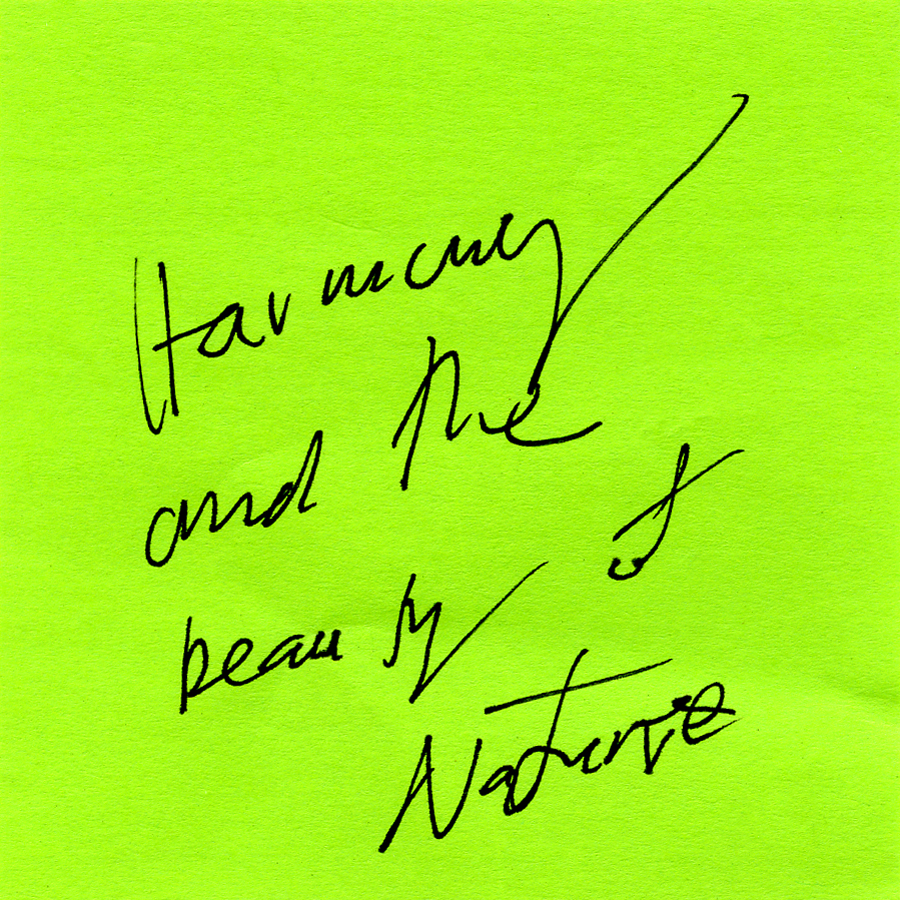 Harmony
and the
beauty of
Nature